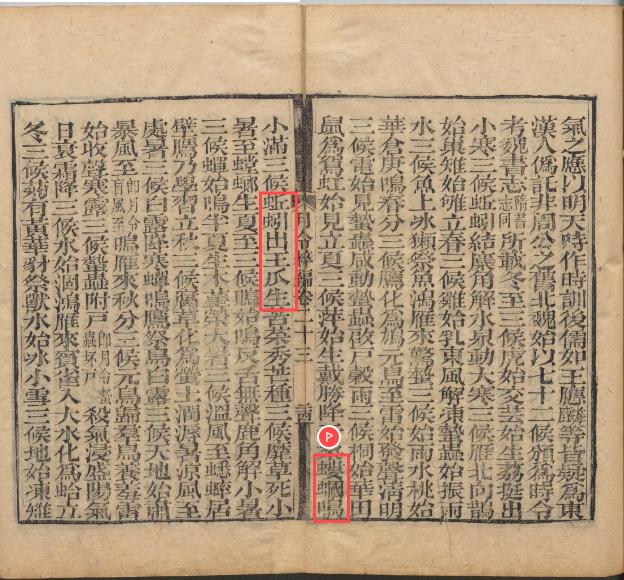 氣之應以明天時作時訓後儒如王應麟等皆疑為東
漢人偽託非周公之舊北魏始以七十二候頒為時令
考魏書志隋書志同所載冬至三候虎始交芸始生荔挺出
小寒三候蚯蚓結麋角解水泉動大寒三候雁北向鵲
始巢雉始雊立春三候雞始乳東風解凍蟄蟲始振雨
水三候魚上冰獺祭魚鴻雁來驚蟄三候始雨水桃始
華倉庚鳴春分三候鷹化為鳩元鳥至雷始發聲清明
三候電始見蟄蟲咸動蟄蟲啟戶穀雨三候桐始華田
鼠為鴽虹始見立夏三候萍始生戴勝降螻蟈鳴
月令粹編卷二十三
小滿三候蚯蚓出王瓜生苦菜秀芒種三候靡草死小
暑至螳螂生夏至三候鵙始鳴反舌無聲鹿角解小暑
三候蟬始鳴半夏生木菫榮大暑三候溫風至蟋蟀居
壁鷹乃學習立秋三候腐草化為螢土潤溽暑涼風至
處暑三候白露降寒蟬鳴鷹祭鳥白露三候天地始肅
暴風至即月令盲風至鴻雁來秋分三候元鳥歸羣鳥養羞雷
始收聲寒露三候蟄蟲附戶即月令蟄蟲坏戶殺氣浸盛陽氣
日衰霜降三候水始涸鴻雁來賓雀入大水化為蛤立
冬三候菊有黃華豺祭獸水始冰小雪三候地始凍雉